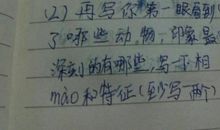 (2) 再写你第一眼看到
了哪些动物,印象最
深刻的有哪些,写一下相
mào和特征(至少写两个)